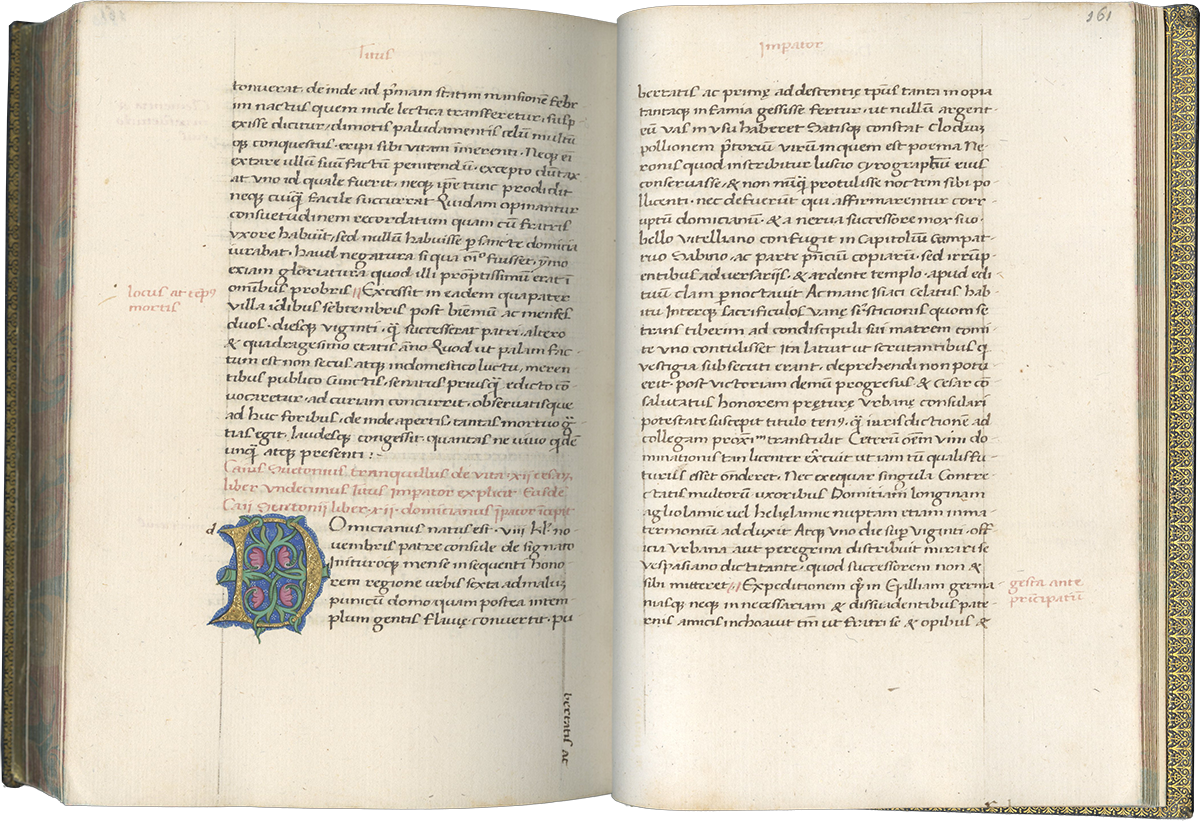 Titus
tonuerat. deinde ad p̄mam statim mansionē febr
im nactus quem inde lectica transferetur, susp-
exisse dicitur, dimotis paludamentis celum multū
qȝ conquestus. eripi sibi vitam īmerenti. Neqȝ ei
extare ullū suū factū penitendū. excepto dūtax-
at uno id quale fuerit, neqȝ ip̄e tunc prodidit
neqȝ cuiq̄ facile succurrat Quidam opinantur
consuetudinem recordatum quam cū fratris
uxore habuit, sed nullū habuisse p̄sancte domicia
iurabat. haud negatura si qua oī° fuisset, ymo
exiam gloriatura quod illi pro͂ptissimū erat ī
omībus probris // Excessit in eadem qua pater
villa idibus sebtembris post biēniū ac menses
duos. diesqȝ viginti. q̄ successerat patri. altero
& quadragesimo etatis āno Quod ut palam fac-
tum est non secus atqȝ indomestico luctu, meren-
tibus publico cunctis. senatus priusq̄ edicto cō-
vocaretur. ad curiam concurrit. observatisque
ad huc foribus. deinde apertis, tantas mortuo gr̄-
tias egit, laudesqȝ congessit. quantas ne vivo q̄dē
unq̄ atqȝ presenti :-
locus at tēpꝰ
mortis
Caius Suetonius tranquillus de vita .xii cesaꝝ
liber undecimus titus Impator explicit Eiusdē
Caii Suetonii liber .xii. domicianus īpator īcipit
d
DOmicianus natus est. viii kl' no-
vembris patre consule de signato
Inituroqȝ mense insequenti hono
rem regione urbis sexta ad malum
punicū domo quam postea intem
plum gentis flavię convertit. pu
bertatis ac
Impator
161
bertatis ac primę ad descentię tp̄us tanta inopia
tantaqȝ infamia gessisse fertur. ut nullum argent-
eū vas in usu haberet Satisqȝ constat Clodium
pollionem p̄torium virū inquem est poema Ne-
ronis quod inscribitur luscio cyrographum eius
conservasse, & non nūq̄ protulisse noctem sibi po-
llicenti. nec defuerūt qui affirmarentur corr-
uptū domicianū. & a nerva successore mox suo.
bello vitelliano confugit in capitolium cumpat-
ruo Sabino ac parte p̄ntium copiarū. sed irrūp-
entibus adversariis. & ardente templo. apud edi-
tuum clam p̄noctavit Ac mane Isiaci celatus hab-
itu Interqȝ sacrificulos vanę suꝑsticionis quom se
trans tiberim ad condiscipuli sui matrem comi-
te uno contulisset Ita latuit ut scrutantibus q̄
vestigia subsecuti erant. deprehendi non potu-
erit. post victoriam demū progresus & cesar cō-
salutatus honorem pręturę urbanę consulari
potestate suscepit titulo tenꝰ. q̄ iurisdictionē ad
collegam proxim̄ transtulit Ceterū oēm vim do-
minationis tam licenter ex̄cuit ut iam tū qualis fu-
turus esset ōnderet. Nec exequar singula Contre
ctatis multorū uxoribus Domitiam longinam
agliolamie ud helięlamie nuptam etiam inma
termoniū ad duxit Atqȝ uno die suꝑ viginti. off
icia urbana aut peregrina distribuit mirari se
vespasiano dictitante. quod successorem non &
sibi mitteret // Expeditionem q̄ȝ in galliam germa-
niasqȝ neqȝ in necessariam & dissuadentibus pate-
rnis amicis inchoavit tm̄ ut fratri se & opibus &
gesta ante
principatū